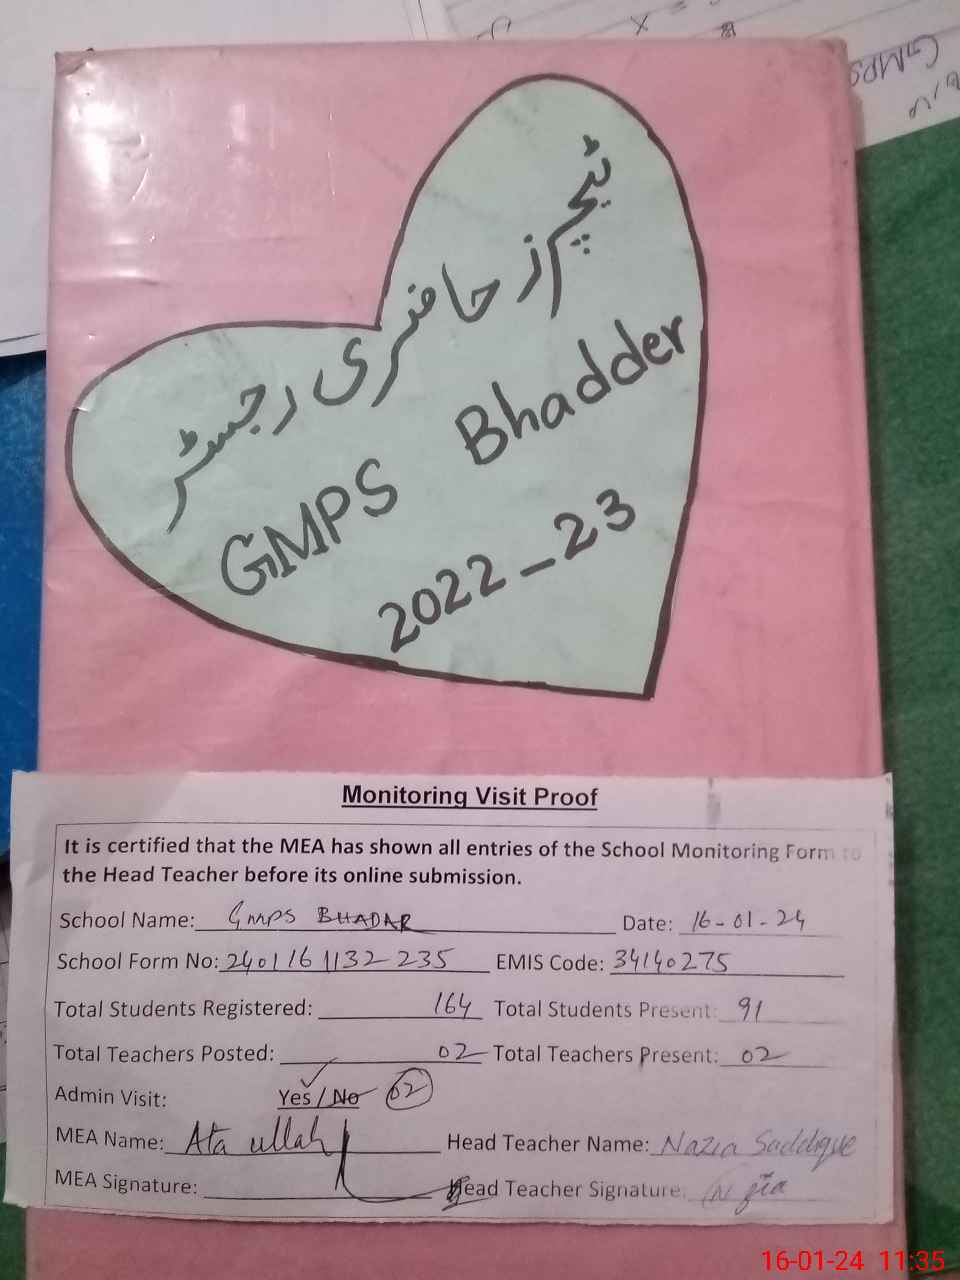 GMPS
ٹیچرز حاضری رجسٹر
GMPS Bhadder
2022_23
Monitoring Visit Proof
It is certified that the MEA has shown all entries of the School Monitoring Form to
the Head Teacher before its online submission.
School Name: GMPS BHADAR Date: 16-01-24
School Form No: 2401161132235 EMIS Code: 34140275
Total Students Registered: 164 Total Students Present: 91
Total Teachers Posted: 02 Total Teachers Present: 02
Admin Visit: Yes / No 02
MEA Name: Ata ullah Head Teacher Name: Nazia Saddique
MEA Signature: Head Teacher Signature:
16-01-24 11:35